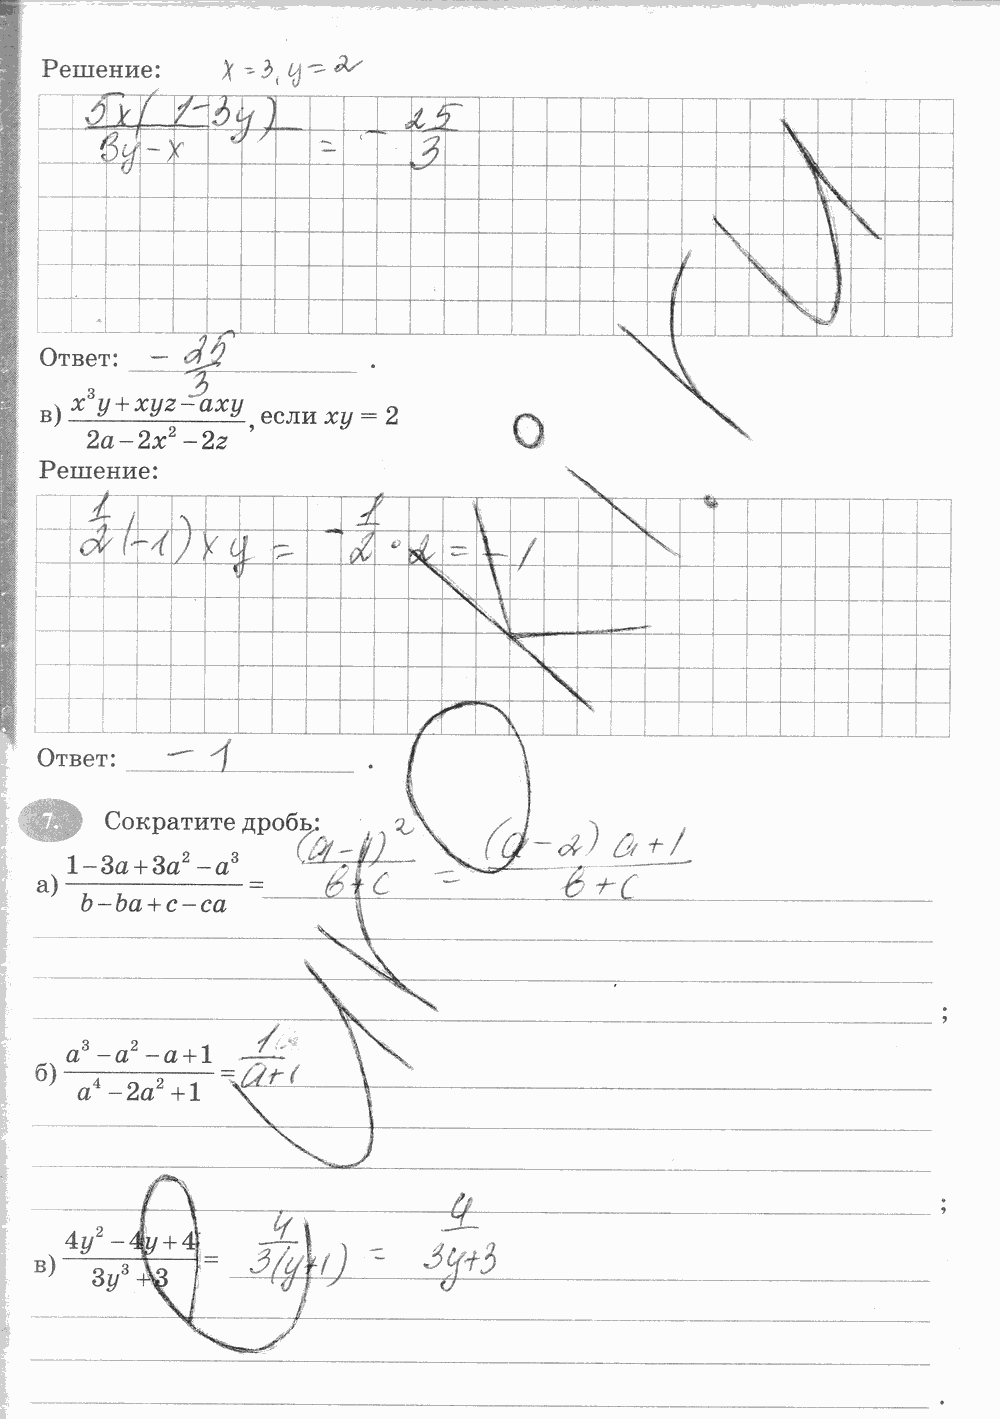 Решение: x = 3, y = 2
5x(1-3y) / 3y-x = - 25/3
Ответ: - 25/3 .
в) (x³y + xyz - axy) / (2a - 2x² - 2z), если xy = 2
Решение:
1/2 (-1) xy = - 1/2 · 2 = -1
Ответ: -1 .
7. Сократите дробь:
а) (1 - 3a + 3a² - a³) / (b - ba + c - ca) = (a-1)² / (b+c) = (a-2) a+1 / (b+c)
;
б) (a³ - a² - a + 1) / (a⁴ - 2a² + 1) = 1 / (a+1)
;
в) (4y² - 4y + 4) / (3y³ + 3) = 4 / 3(y+1) = 4 / 3y+3
.